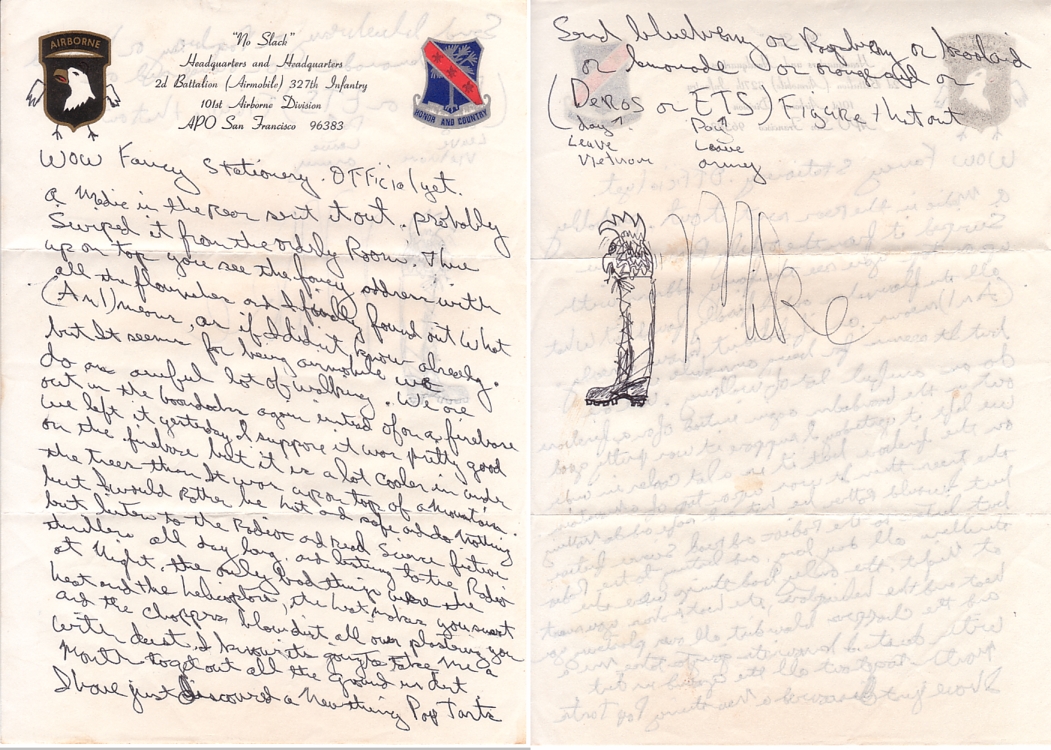 AIRBORNE
"No Slack"
Headquarters and Headquarters
2d Battalion (Airmobile) 327th Infantry
101st Airborne Division
APO San Francisco 96383
HONOR AND COUNTRY
Wow Fancy Stationery. Official yet.
a Medic in the Rear sent it out. probably
Swiped it from the ordily Room. There
up on top you see the fancy address with
all the flourishes and I finally found out what
(Am) means, as if I didn't know already.
but It seems for being airmobile we
do an awful lot of walking. We are
out in the boondocks again instead of on a firebase
we left it yesterday I suppose it was pretty good
on the firebase but it is a lot cooler in under
the trees than It was up on top of a mountain.
but I would Rather be hot and safe and do nothing
but listen to the Radios and Read Science fiction
thrillers all day long and listing to the Radios
at Night. the only bad things were the
heat and the helicopters, the heat makes you sweat
and the choppers blow dirt all over plastering you
with dust. I know its going to take me a
Month to get out all the ground in dirt
I have just discoverd a New thing Pop Tarts
Send blueberry or Raspberry or koolaid
or lemonade or orange aid or
(Deros or ETS) Figure that out
day? Pay?
Leave Leave
Vietnam army
Mike